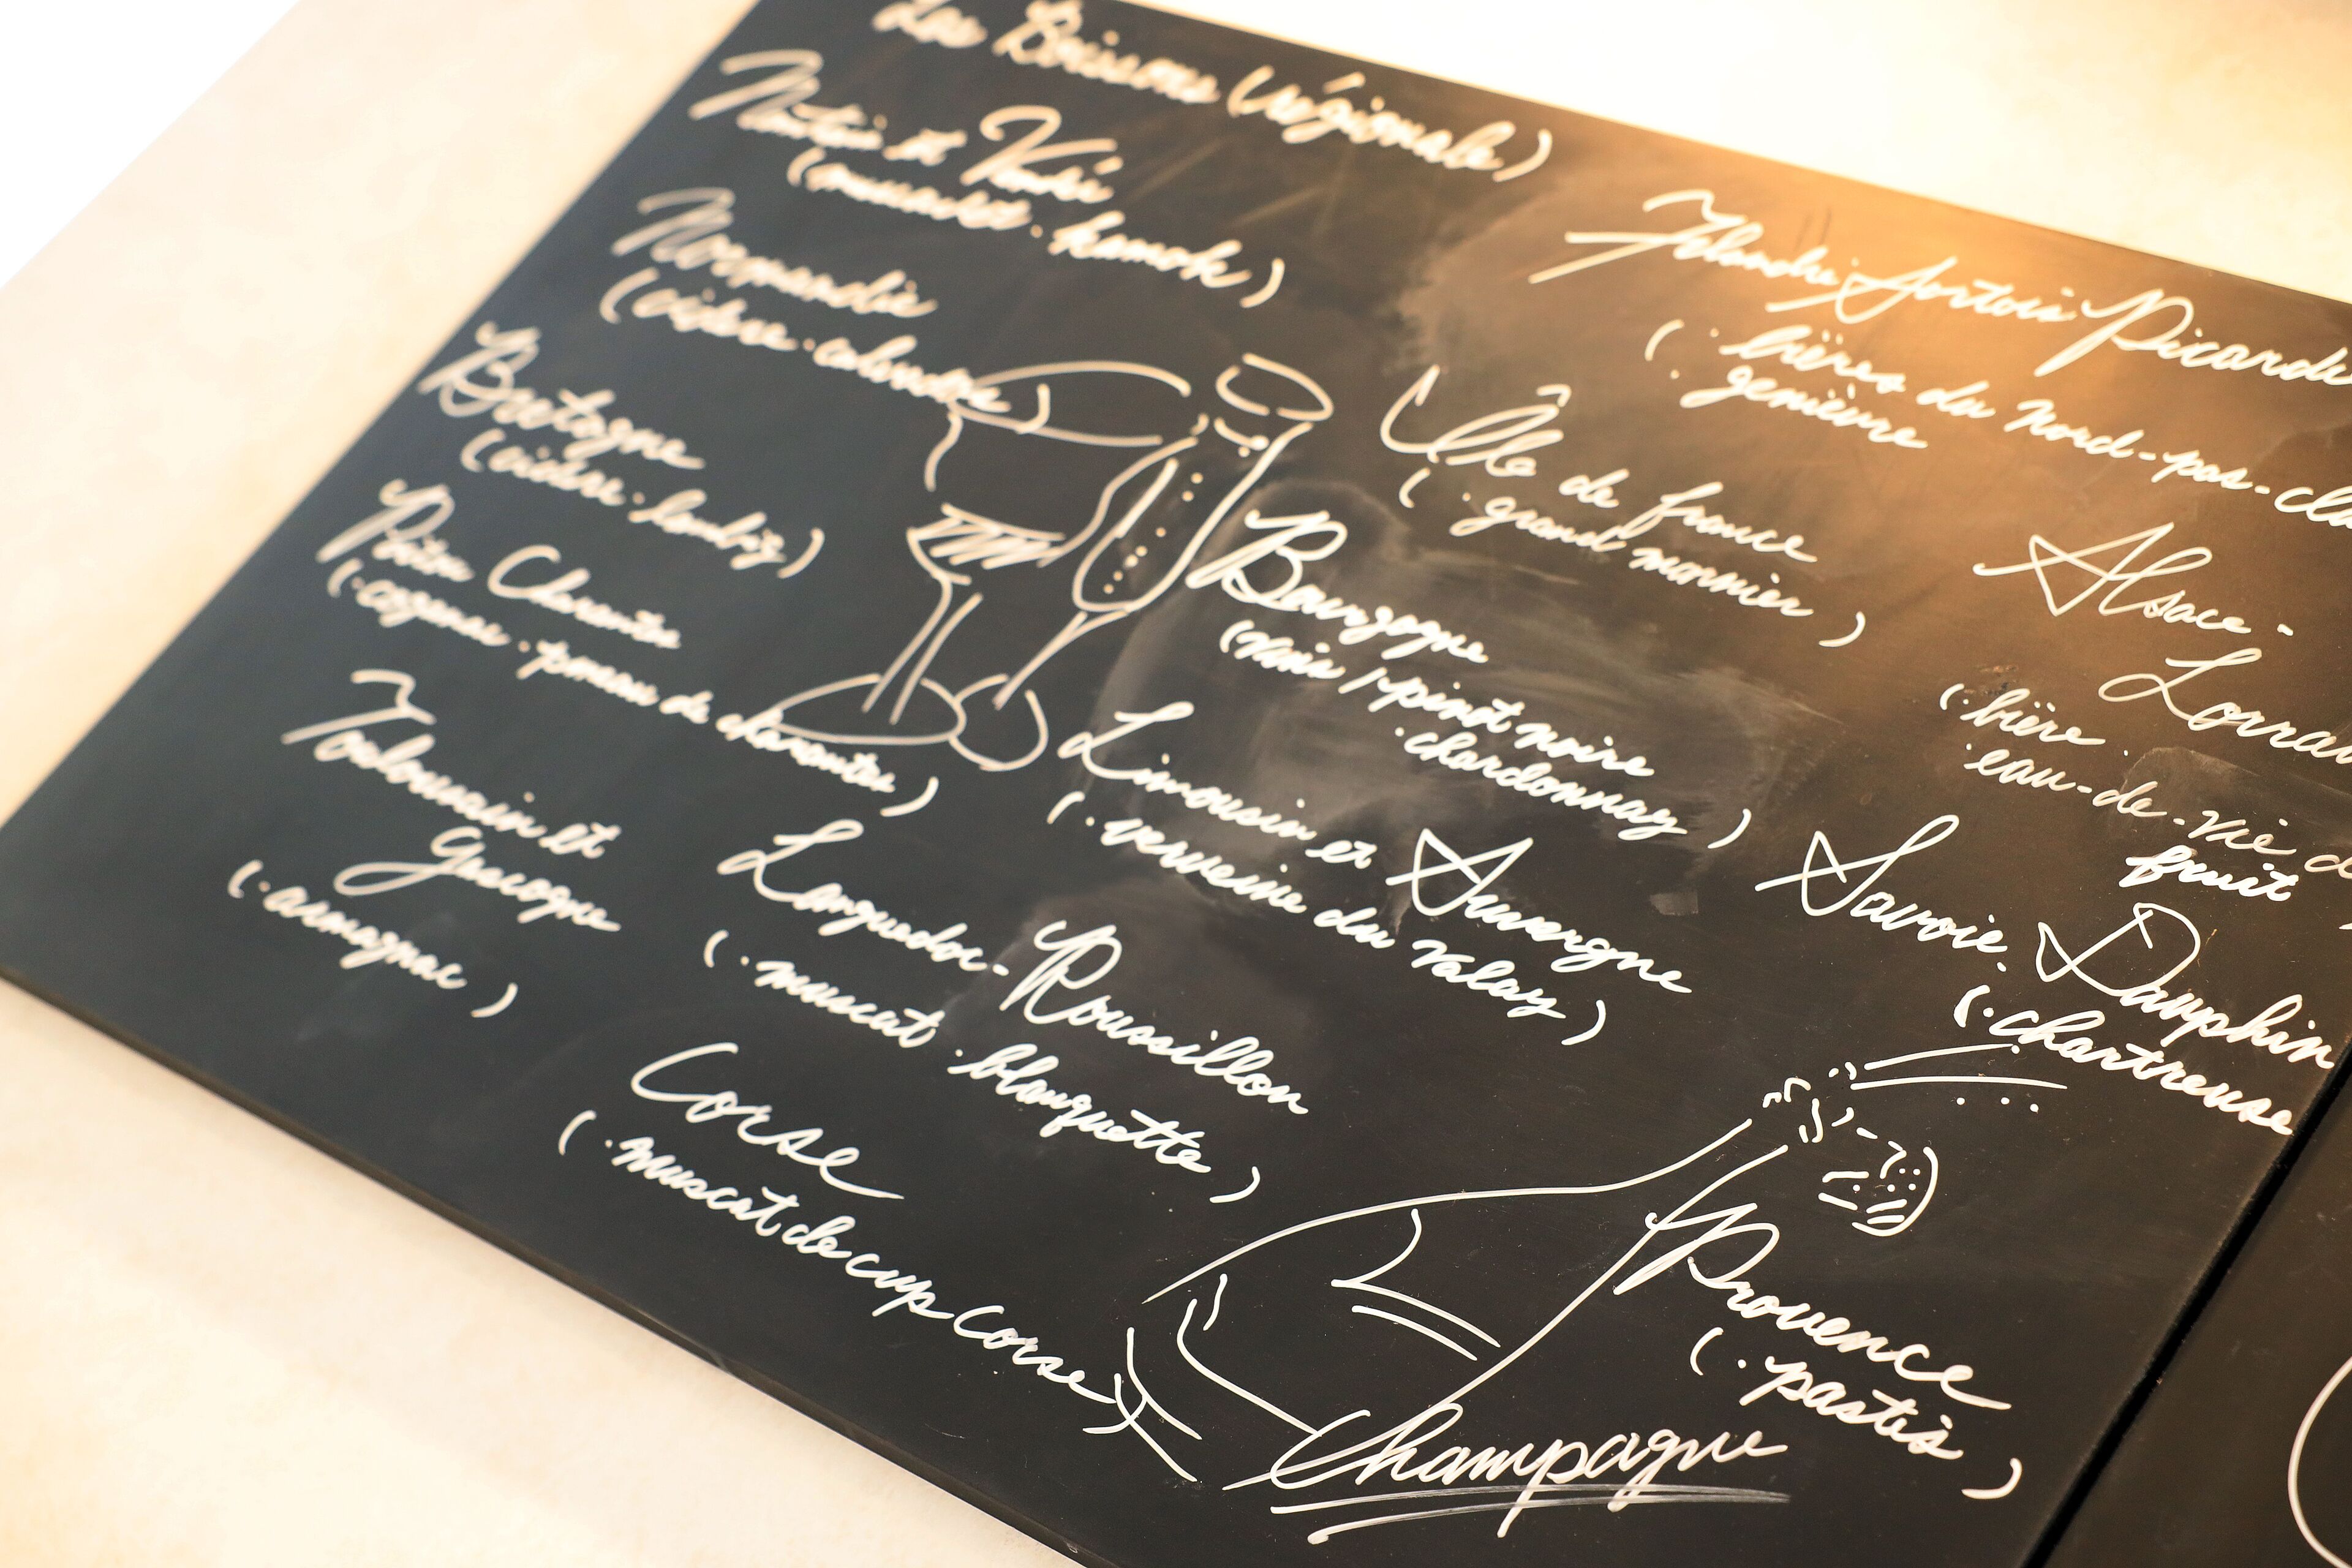 Les Boissons (régionale)
et
(muscadet · kamok)
Normandie
(cidre · calvados)
Bretagne
(cidre · lambig)
Poitou Charentes
(· cognac · pineau de charentes)
Toulousain et
Gascogne
(· armagnac)
Languedoc-Roussillon
(· muscat · blanquette)
Corse
(· muscat de cup Corse)
Artois Picardi
(· bières du nord-pas-
· genièvre
Île de france
(· grand marnier)
Bourgogne
(vins / · pinot noire
· chardonnay)
Limousin et Auvergne
(· verveine du valay)
Alsace-
Lorrai
(· bière ·
· eau-de-vie d
fruit
Savoie. Dauphin
(· chartreuse
Provence
(· pastis)
Champagne